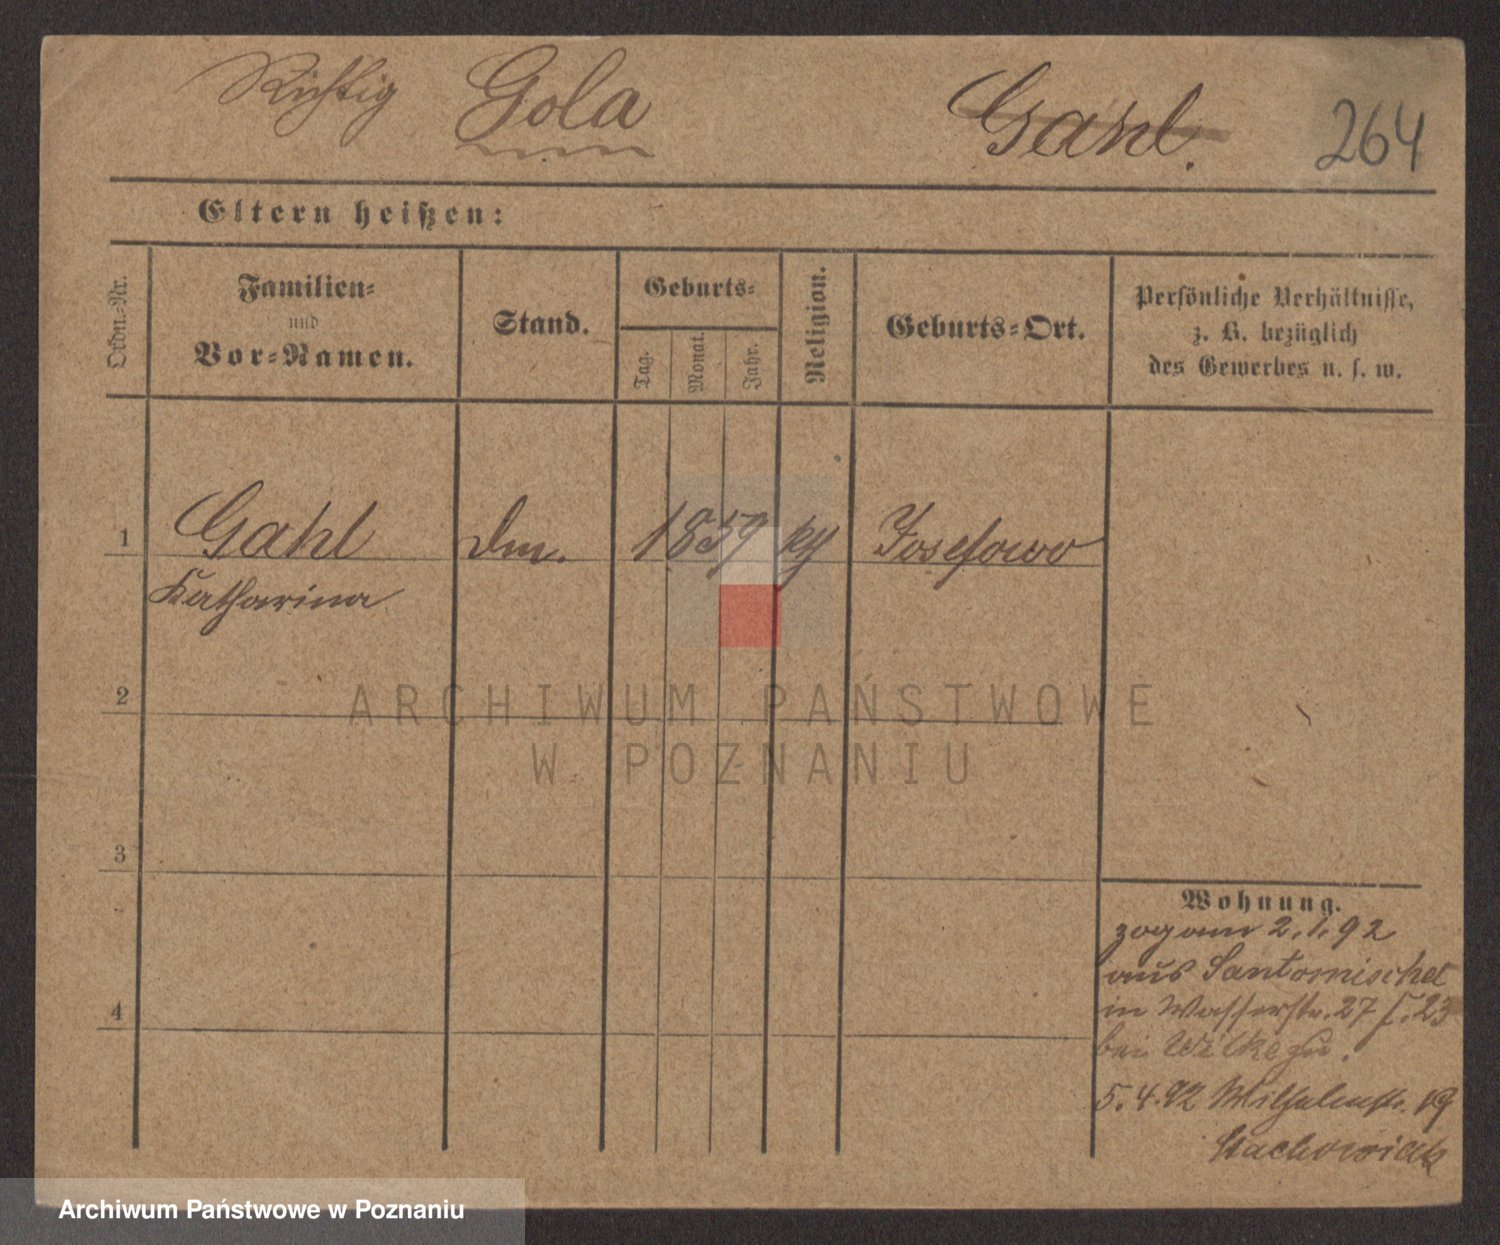 Richtig Gola Gahl. 264
Eltern heißen:
Ordn.-Nr.
Familien-
und
Vor-Namen.
Stand.
Geburts-
Tag.
Monat.
Jahr.
Religion.
Geburts-Ort.
Persönliche Verhältnisse,
z. B. bezüglich
des Gewerbes u. s. w.
1 Gahl 1859 Josefowo
Katharina
2
3
4
Wohnung.
zog am 2.1.92
aus Santomischel
in Wasserstr. 27
bei Wilke zu.
5.4.92 Wilhelmstr. 19
Stachowiak
ARCHIWUM PAŃSTWOWE
W POZNANIU
Archiwum Państwowe w Poznaniu